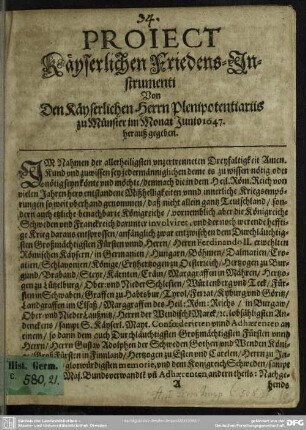 34.
PROJECT
Käyserlichen Friedens-In-
strumenti
Von
Den Käyserlichen Herrn Plenipotentiariis
zu Münster im Monat Junio 1647.
herauß gegeben.
IM Nahmen der allerheiligsten unzertrenneten Dreyfaltigkeit Amen.
Kund und zu wissen sey jedermänniglichen deme es zu wissen nötig oder
seyn könte und möchte, demnach die in dem Heil. Röm. Reich von
vielen Jahren hero entstandene Mißhelligkeiten und innerliche Kriegsempö-
rungen so weit überhand genommen, daß nicht allein gantz Teutschland, son-
dern auch etliche benachbarte Königreiche, vornemblich aber die Königreiche
Schweden und Franckreich darunter involvirt, und der noch werende hefftige
Krieg daraus entsprossen, anfänglich zwar entzwischen dem Durchläuchtig-
sten Großmächtigsten Fürsten unnd Herrn, Herrn Ferdinando II. erwehlten
Römischen Käysern, in Germanien, Hungarn, Böheimb, Dalmatien, Croa-
tien, Schlavonien, Könige, Ertzhertzogen zu Oesterreich, Hertzogen zu Bur-
gund, Braband, Steyr, Kärnten, Crain, Marggraffen in Mähren, Hertzo-
gen zu Lützelburg, Ober und Nieder Schlesien, Würtenberg und Teck, Für-
sten in Schwaben, Graffen zu Habspurg, Tyrol, Kyburg und Görtz,
Landgraffen im Elsaß, Marggraffen des Heil. Röm. Reichs, in Burgaw,
Ober und Nieder Laußnitz, Herrn der Windischen Marck, lobsähligsten An-
denckens, sampt S. Käyserl. Mayt. Confoederirten und Adhaerenten an
einem, so dann dem auch Durchläuchtigsten Großmächtigsten Fürsten unnd
Herrn, Herrn Gustav Adolphen der Schweden Gothen und Wenden König,
Groß Fürsten in Finnland, Hertzogen zu Esten und Carelen, Herrn zu In-
glorwürdigsten memorie, und dem Königreich Schweden, sampt
Maj. Bundsverwandten und Adhaerenten andern theils: Nachge-
A hends
Hist. Germ.
C.
580,21